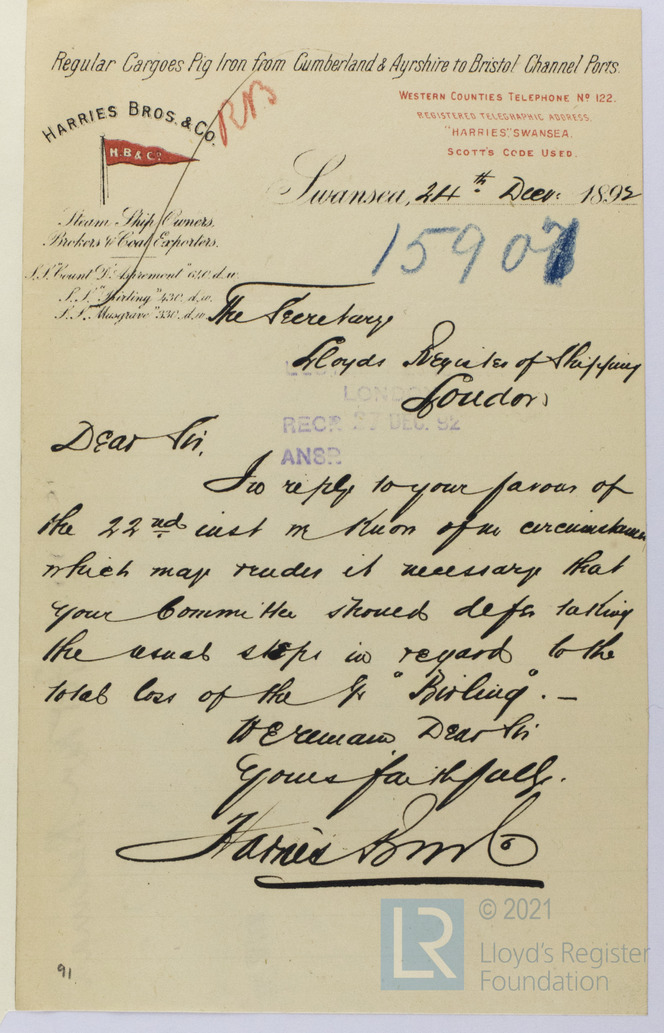 Regular Cargoes Pig Iron from Cumberland & Ayrshire to Bristol Channel Ports.
HARRIES BROS. & Co.
H.B & Co.
RB
WESTERN COUNTIES TELEPHONE No 122.
REGISTERED TELEGRAPHIC ADDRESS.
"HARRIES" SWANSEA.
SCOTT'S CODE USED.
Swansea, 24th Decr. 1892
Steam Ship Owners,
Brokers & Coal Exporters.
15907
S.S. "Count D'Aspremont" 640. d.w.
S.S. "Birling" 430. d.w.
S.S. "Musgrave" 330. d.w.
The Secretary
Lloyds Register of Shipping
London
LONDON
RECD 27 DEC. 92
ANSD
Dear Sir,
In reply to your favour of
the 22nd inst we know of no circumstances
which may render it necessary that
your Committee should defer taking
the usual steps in regard to the
total loss of the "Birling". —
We remain Dear Sir
Yours faithfully.
Harries Bros & Co
91
LR
© 2021
Lloyd's Register
Foundation